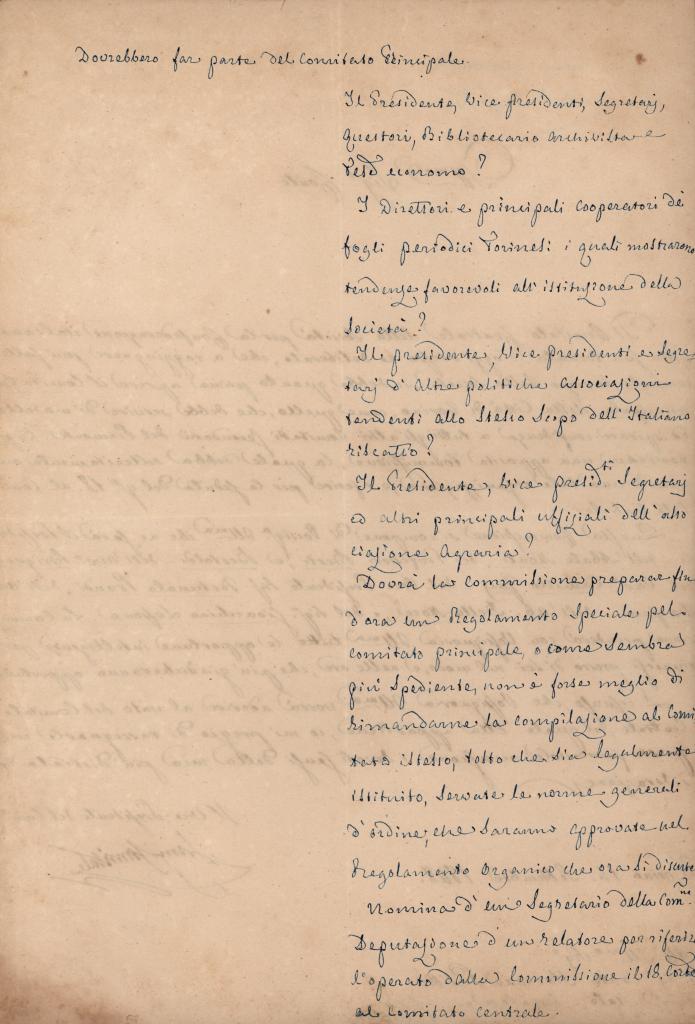 Dovrebbero far parte del Comitato Principale.
Il Presidente, Vice presidenti, Segretarj,
Questori, Bibliotecario archivista e
economo?
I Direttori e principali cooperatori de'
fogli periodici Torinesi i quali mostrarono
tendenze favorevoli all'istituzione della
Società?
Il presidente, Vice presidenti e Segre-
tarj d'altre politiche associazioni
tendenti allo Stesso Scopo dell'Italiano
riscatto?
Il Presidente, Vice presid.ti Segretarj
ed altri principali uffiziali dell'asso
ciazione Agraria?
Dovrà la Commissione preparar fin
d'ora un Regolamento Speciale pel
comitato principale, o come Sembra
più Spediente, non è forse meglio di
rimandarne la compilazione al Comi
tato istesso, tosto che sia legalmente
istituito, servate le norme generali
d'ordine, che saranno approvate nel
Regolamento Organico che ora si discute
Nomina d'un Segretario della Com.ne
Deputazione d'un relatore per riferir
l'operato dalla Commissione il 18. Corr.e
al Comitato centrale.